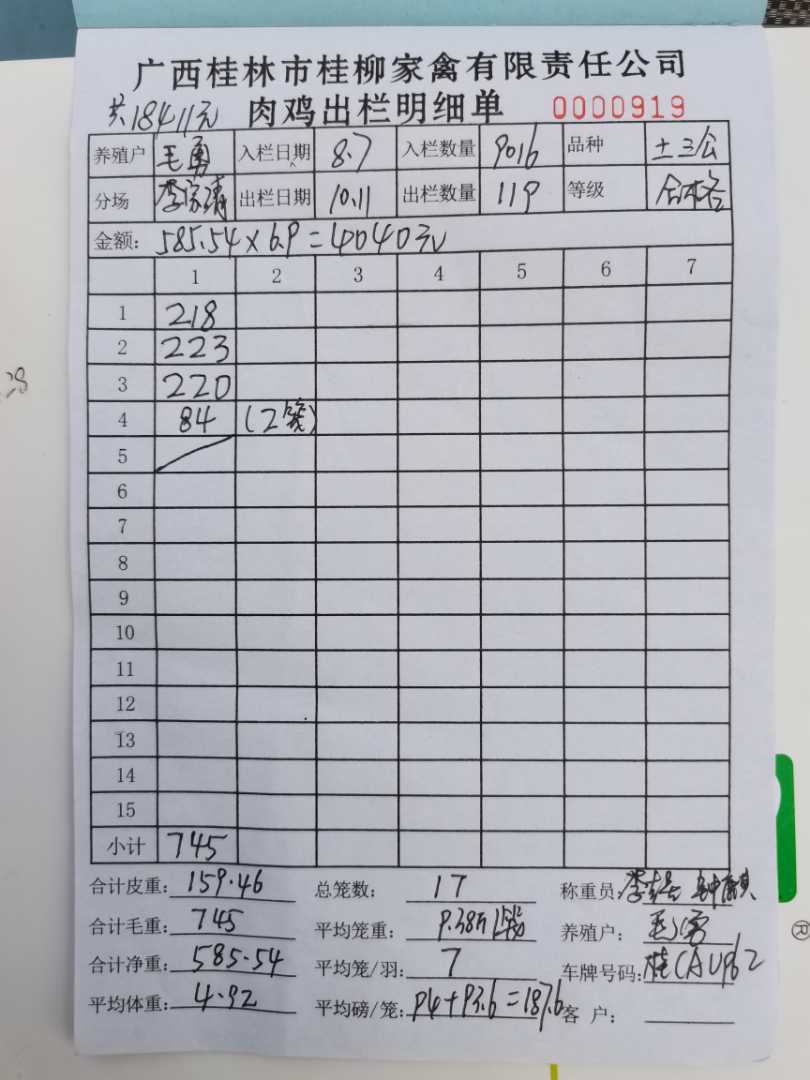 广西桂林市桂柳家禽有限责任公司
共18411元 肉鸡出栏明细单 0000919
养殖户 毛勇 入栏日期 8.7 入栏数量 9016 品种 土三公
分场 出栏日期 10.11 出栏数量 119 等级
金额: 585.54×6.9=4040元
1 2 3 4 5 6 7
1 218
2 223
3 220
4 84 (2笼)
5
6
7
8
9
10
11
12
13
14
15
小计 745
合计皮重: 159.46 总笼数: 17 称重员:
合计毛重: 745 平均笼重: 9.38斤/笼 养殖户: 毛勇
合计净重: 585.54 平均笼/羽: 7 车牌号码: 桂CAU962
平均体重: 4.92 平均磅/笼: 94+93.6=187.6 客 户: